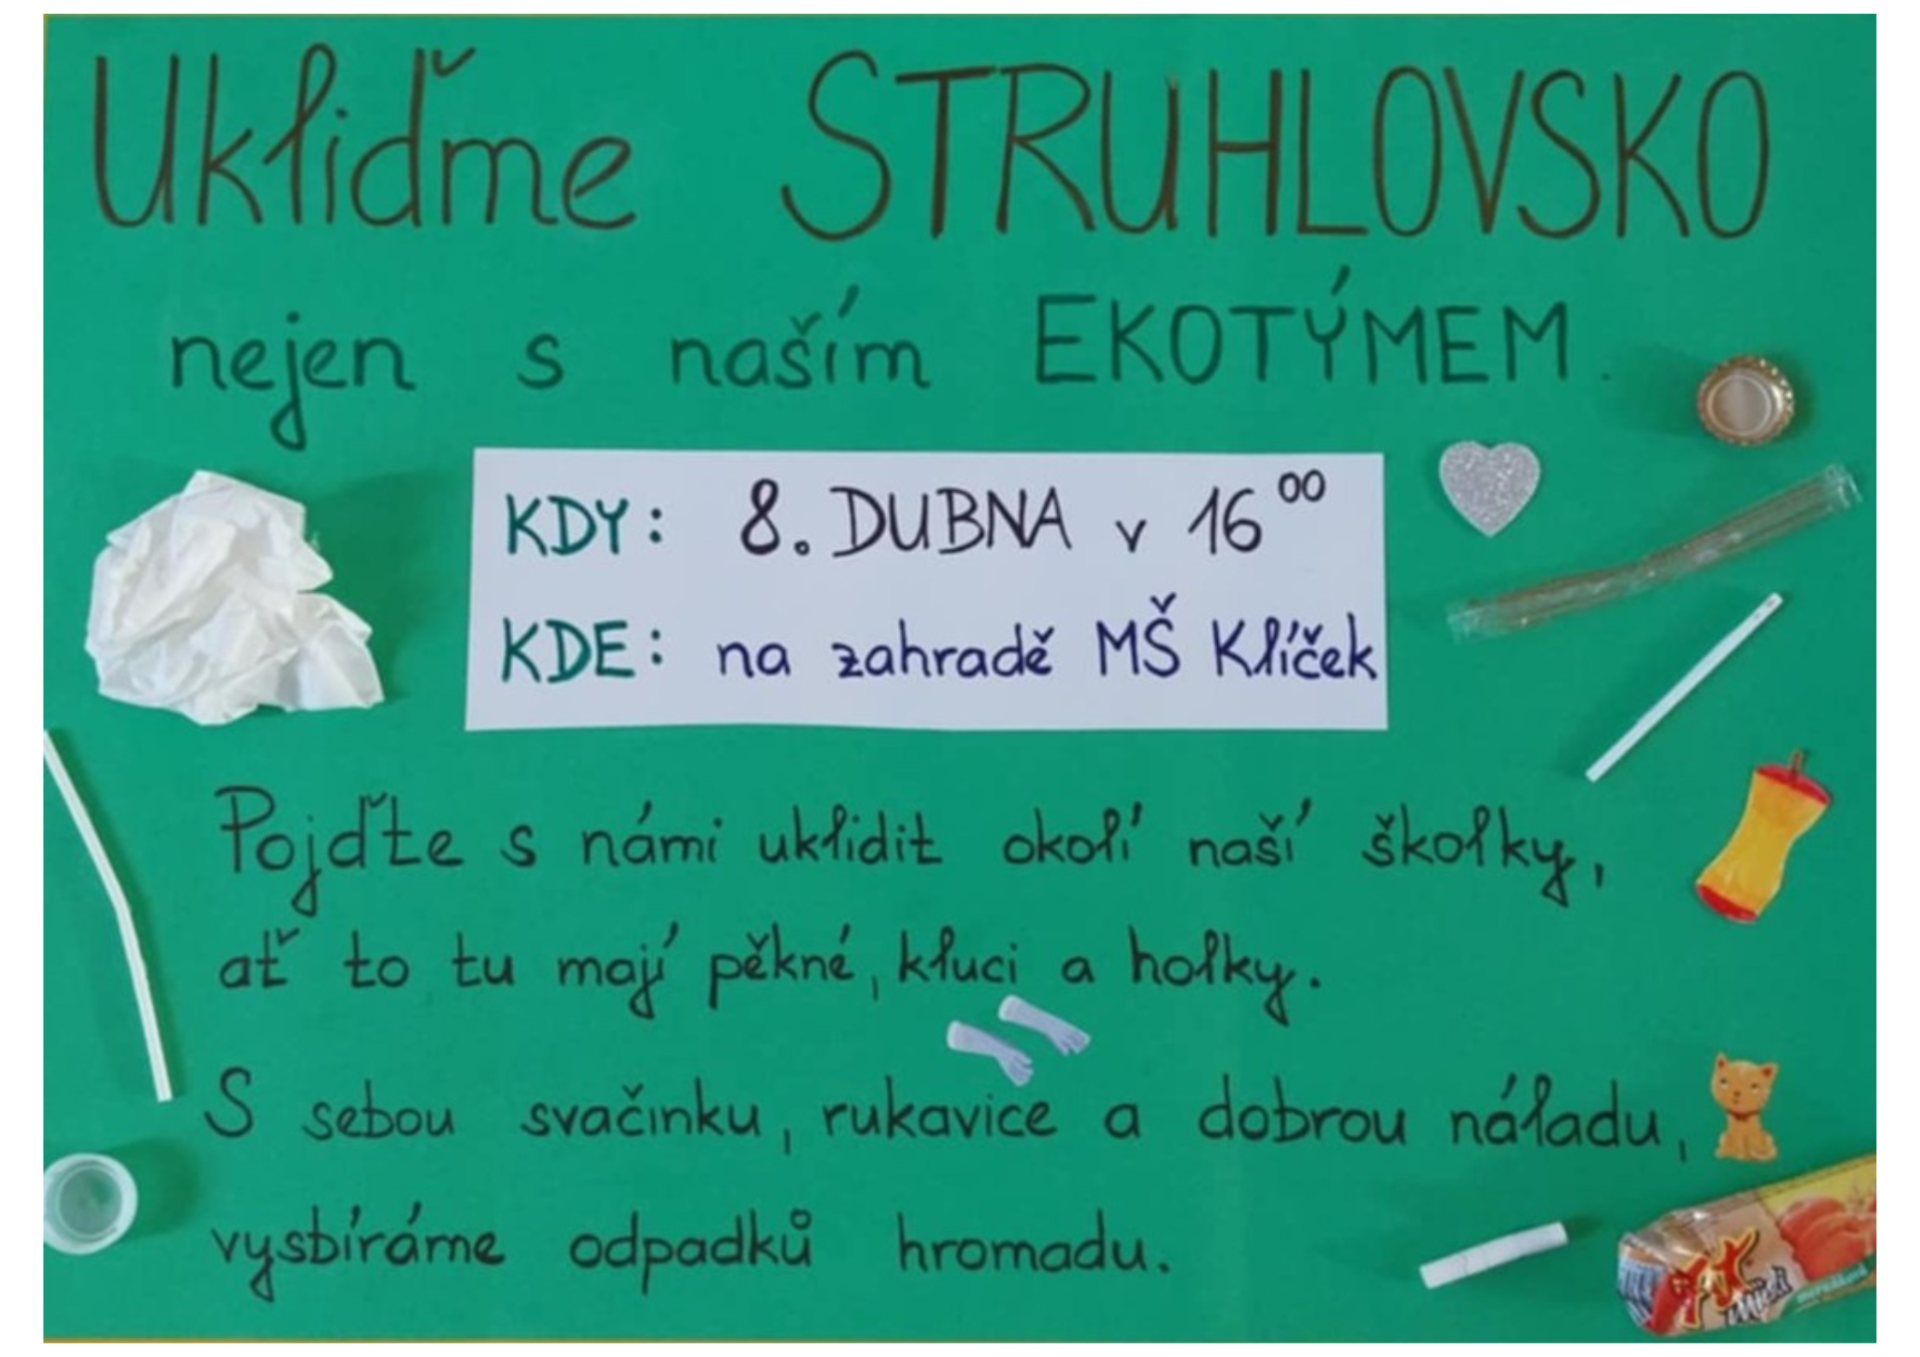 Ukliďme STRUHLOVSKO
nejen s naším EKOTÝMEM.
KDY: 8. DUBNA v 16⁰⁰
KDE: na zahradě MŠ Klíček
Pojďte s námi uklidit okolí naší školky,
ať to tu mají pěkné, kluci a holky.
S sebou svačinku, rukavice a dobrou náladu,
vysbíráme odpadků hromadu.
Fit
Müsli
meruňková